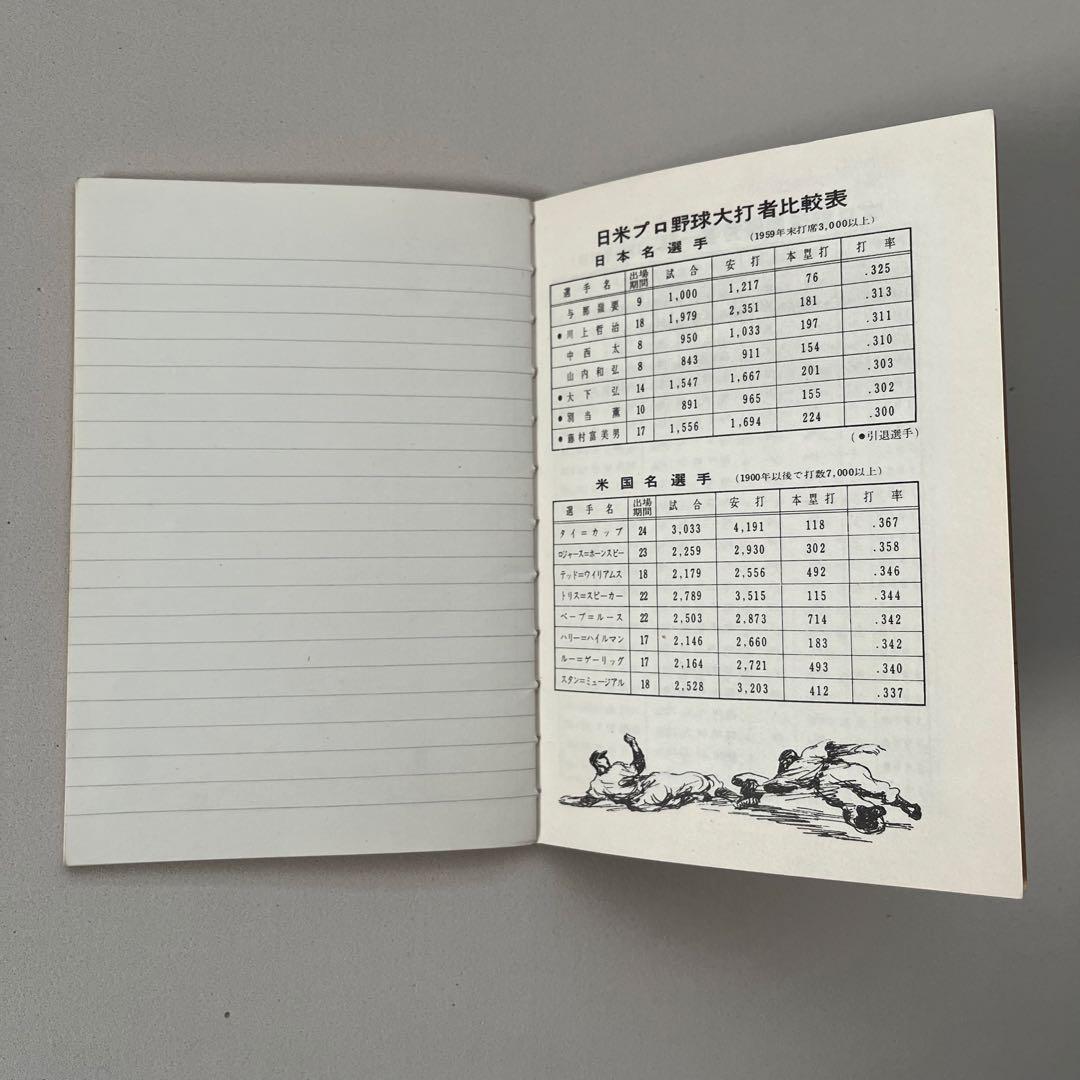 日米プロ野球大打者比較表
日本名選手 (1959年末打席3,000以上)
選手名 出場期間 試合 安打 本塁打 打率
与那嶺要 9 1,000 1,217 76 .325
●川上哲治 18 1,979 2,351 181 .313
中西太 8 950 1,033 197 .311
山内和弘 8 843 911 154 .310
●大下弘 14 1,547 1,667 201 .303
●別当薫 10 891 965 155 .302
●藤村富美男 17 1,556 1,694 224 .300
(●引退選手)
米国名選手 (1900年以後で打数7,000以上)
選手名 出場期間 試合 安打 本塁打 打率
タイ=カップ 24 3,033 4,191 118 .367
ロジャース=ホーンスビー 23 2,259 2,930 302 .358
テッド=ウイリアムス 18 2,179 2,556 492 .346
トリス=スピーカー 22 2,789 3,515 115 .344
ベーブ=ルース 22 2,503 2,873 714 .342
ハリー=ハイルマン 17 2,146 2,660 183 .342
ルー=ゲーリッグ 17 2,164 2,721 493 .340
スタン=ミュージアル 18 2,528 3,203 412 .337